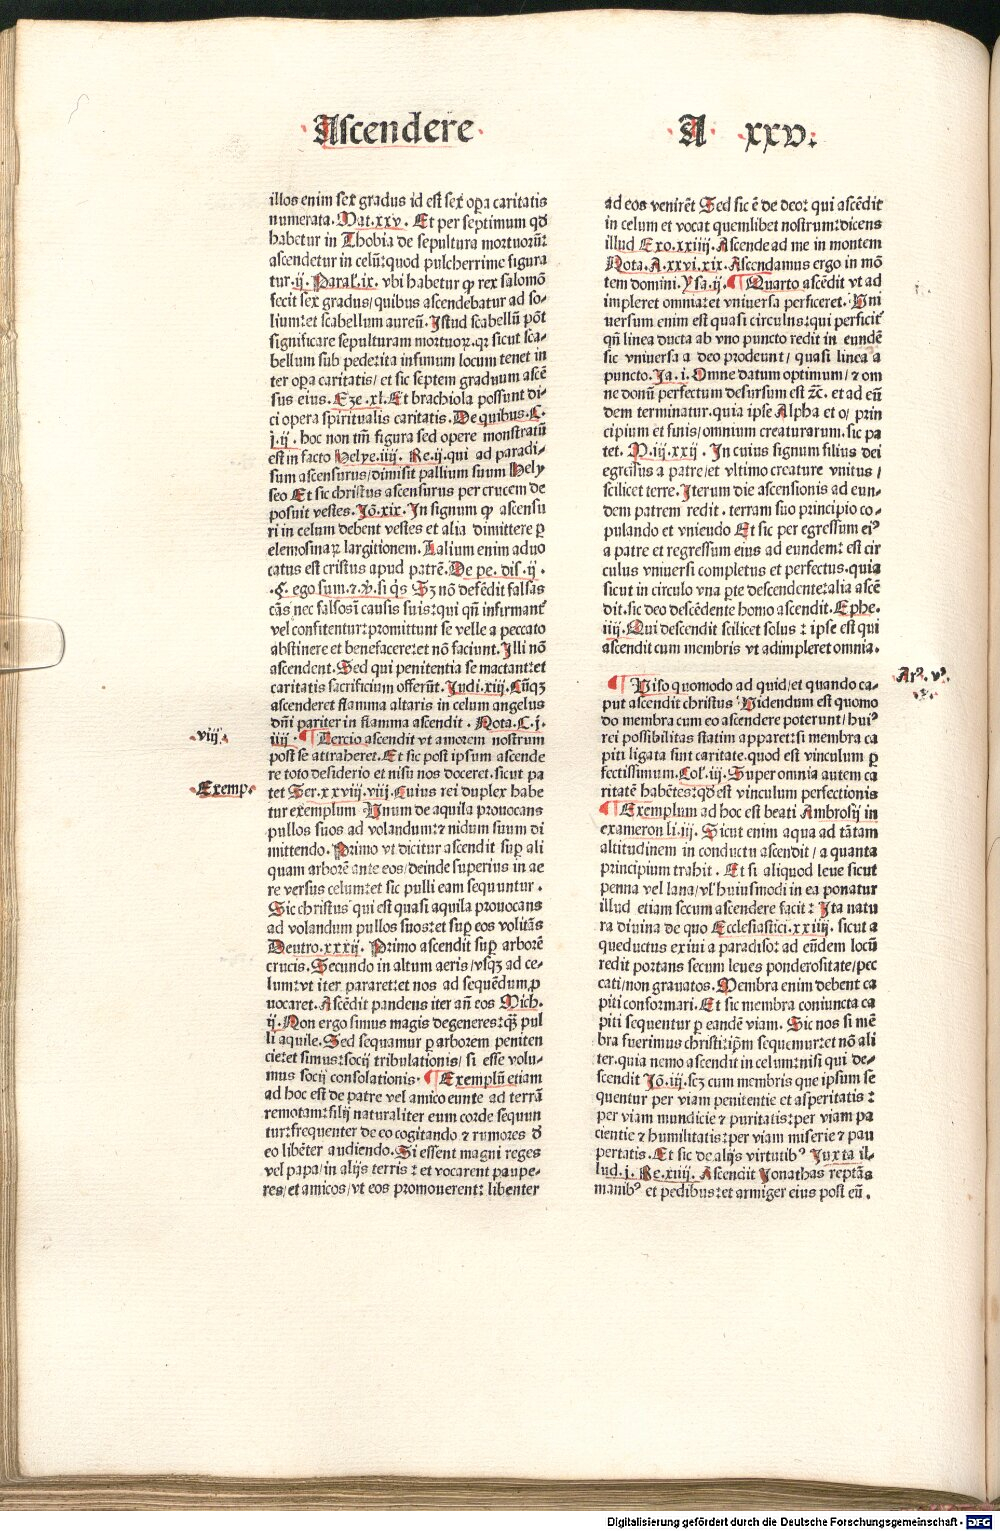 Ascendere
A xxv.
illos enim sex gradus id est sex oꝑa caritatis
numerata. Mat.xxv. Et per septimum qd̄
habetur in Thobia de sepultura mortuorū:
ascendetur in celū: quod pulcherrime figura
tur .ij. Paral.ix. vbi habetur ꝙ rex salomō
fecit sex gradus/ quibus ascendebatur ad so-
lium: et scabellum aureū. Istud scabellū pōt
significare sepulturam mortuoꝝ. qꝛ sicut sca-
bellum sub pede: ita infimum locum tenet in
ter oꝑa caritatis/ et sic septem graduum ascē
sus eius. Eze.xl. Et brachiola possunt di-
ci opera spiritualis caritatis. De quibus. C.
j.ij. hoc non tm̄ figura sed opere monstratū
est in facto Helye.iiij. Re.ij. qui ad paradi-
sum ascensurus/ dimisit pallium suum Hely
seo Et sic christus ascensurus per crucem de
posuit vestes. Jo̅.xix. In signum ꝙ ascensu
ri in celum debent vestes et alia dimittere ꝑ
elemosinaꝝ largitionem. Talium enim aduo
catus est cristus apud patrē. De pe. dis .ij.
.§. ego sum. ⁊.v̄. si q̇s Sꝫ nō defēdit falsas
cās nec falsos ī causis suis: qui qn̄ infirmant᷑
vel confitentur: promittunt se velle a peccato
abstinere et benefacere: et nō faciunt. Illi nō
ascendent. Sed qui penitentia se mactant: et
caritatis sacrificium offerūt. Judi.xiij. Cūqꝫ
ascenderet flamma altaris in celum angelus
dn̄i pariter in flamma ascendit. Nota. C. j.
iiij. ¶ Tercio ascendit vt amorem nostrum
post se attraheret. Et sic post ipsum ascende
re toto desiderio et nisu nos doceret. sicut pa
tet Ser.xxviij.viij. Cuius rei duplex habe
tur exemplum Vnum de aquila prouocans
pullos suos ad volandum: ⁊ nidum suum di
mittendo. Primo vt dicitur ascendit suꝑ ali
quam arborē ante eos/ deinde superius in ae
re versus celum: et sic pulli eam sequuntur.
Sic christus qui est quasi aquila prouocans
ad volandum pullos suos: et suꝑ eos volitās
Deutro.xxxij. Primo ascendit suꝑ arborē
crucis. Secundo in altum aeris/ vsqꝫ ad ce-
lum: vt iter pararet: et nos ad sequēdum ꝓ
uocaret. Ascēdit pandens iter an̄ eos Mich.
ij. Non ergo simus magis degeneres: qꝫ̄ pul
li aquile. Sed sequamur ꝑ arborem peniten
cie: et simus: socij tribulationis/ si esse volu-
mus socij consolationis. ¶ Exemplū etiam
ad hoc est de patre vel amico eunte ad terrā
remotam: filij naturaliter eum corde sequun
tur: frequenter de eo cogitando ⁊ rumores d̄
eo libēter audiendo. Si essent magni reges
vel papa/ in alijs terris: et vocarent paupe-
res/ et amicos/ vt eos promouerent: libenter
viij.
Exemp.
ad eos venirēt Sed sic ē de deo: qui ascēdit
in celum et vocat quemlibet nostrum: dicens
illud Exo.xxiiij. Ascende ad me in montem
Nota. A.xxvi.xix. Ascendamus ergo in mō
tem domini. Ysa.ij. ¶ Quarto ascēdit vt ad
impleret omnia: et vniuersa perficeret. Vni
uersum enim est quasi circulus: qui perficit᷑
qn̄ linea ducta ab vno puncto redit in eundē
sic vniuersa a deo prodeunt/ quasi linea a
puncto. Ja.i. Omne datum optimum/ ⁊ om
ne donū perfectum desursum est ⁊c̄. et ad eū
dem terminatur. quia ipse Alpha et o/ prin
cipium et finis/ omnium creaturarum. sic pa
tet. P.iij.xxij. In cuius signum filius dei
egressus a patre/ et vltimo creature vnitus/
scilicet terre. Iterum die ascensionis ad eun-
dem patrem redit. terram suo principio co-
pulando et vniendo Et sic per egressum eiꝰ
a patre et regressum eius ad eundem: est cir
culus vniuersi completus et perfectus. quia
sicut in circulo vna ꝑte descendente: alia ascē
dit. sic deo descēdente homo ascendit. Ephe.
iiij. Qui descendit scilicet solus: ipse est qui
ascendit cum membris vt adimpleret omnia.
¶ Viso quomodo ad quid/ et quando ca-
put ascendit christus Videndum est quomo
do membra cum eo ascendere poterunt/ huiꝰ
rei possibilitas statim apparet: si membra ca
piti ligata sint caritate. quod est vinculum ꝑ
fectissimum. Col.iij. Super omnia autem ca
ritatē habētes: qd̄ est vinculum perfectionis
¶ Exemplum ad hoc est beati Ambrosij in
exameron li.iij. Sicut enim aqua ad tātam
altitudinem in conductu ascendit/ a quanta
principium trahit. Et si aliquod leue sicut
penna vel lana/ vl̓ huiusmodi in ea ponatur
illud etiam secum ascendere facit: Ita natu
ra diuina de quo Ecclesiastici.xxiiij. sicut a
queductus exiui a paradiso: ad eūdem locū
redit portans secum leues ponderositate/ pec
cati/ non grauatos. Membra enim debent ca
piti conformari. Et sic membra coniuncta ca
piti sequentur ꝑ eandē viam. Sic nos si mē
bra fuerimus christi: ip̄m sequemur: et nō ali
ter. quia nemo ascendit in celum: nisi qui de-
scendit Jo̅.iij. scꝫ cum membris que ipsum se
quentur per viam penitentie et asperitatis:
per viam mundicie ⁊ puritatis: per viam pa
cientie ⁊ humilitatis: per viam miserie ⁊ pau
pertatis. Et sic de alijs virtutibꝰ Juxta il-
lud. j. Re.xiiij. Ascendit Jonathas reptās
manibꝰ et pedibus: et armiger eius post eū.
Arꝰ. vꝰ.
Digitalisierung gefördert durch die Deutsche Forschungsgemeinschaft - DFG